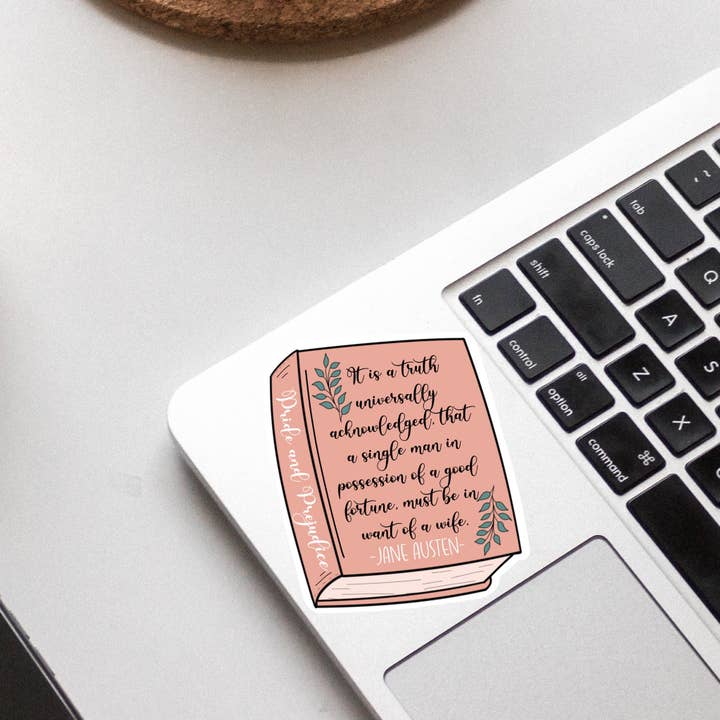 Pride and Prejudice
It is a truth
universally
acknowledged, that
a single man in
possession of a good
fortune, must be in
want of a wife.
-JANE AUSTEN-
~
tab
Q
caps lock
A
shift
Z
X
fn
control
alt
option
command ⌘